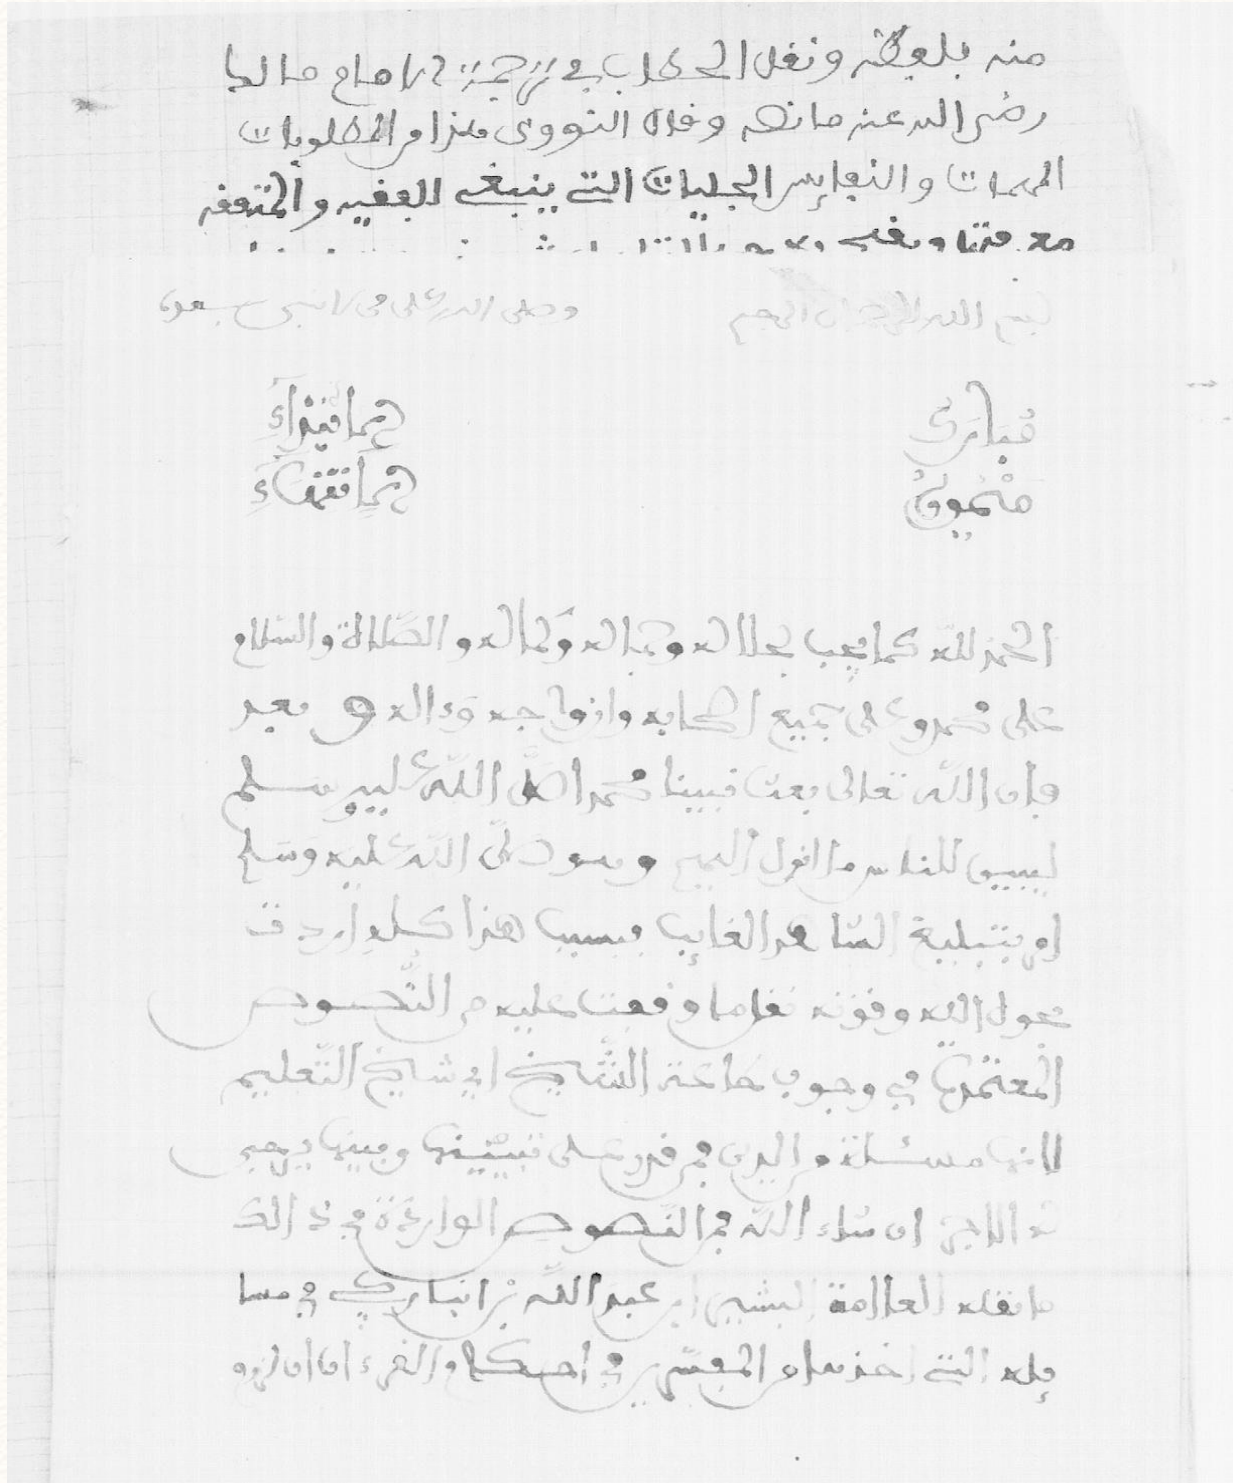 منه بلفظه ونقل الحطاب في ترجمة الامام مالك
رضى الله عنه ما نصه وقال النووى هذا من المطلوبات
المهمات والنفايس الجليلات التى ينبغى للفقيه والمتفقه
معرفتها
بسم الله الرحمان الرحيم وصلى الله على من لا نبي بعده
مُبَارَكٌ
مَيْمُونٌ
الحمد لله كما يجب لجلاله وجماله وكماله والصلاة والسلام
على محمد وعلى جميع اصحابه وازواجه وءاله وبعد
فإن الله تعالى بعث نبينا محمدا صلى الله عليه وسلم
ليبين للناس ما انزل اليهم وهو صلى الله عليه وسلم
امر بتبليغ الشاهد الغايب فبسبب هذا كله اردت
بحول الله وقوته نقل ما وقفت عليه من النصوص
المعتمدة في وجوب طاعة الشيخ اي شيخ التعليم
لانها مسئلة من الدين فمن قدر على تبيينها وبينها يرجى
له الاجر ان شاء الله فمن النصوص الواردة في ذالك
ما نقله العلامة البشير ابن عبد الله بن انباركي في مسا
يله التى اخذها من المفسرين في احكام القرءان